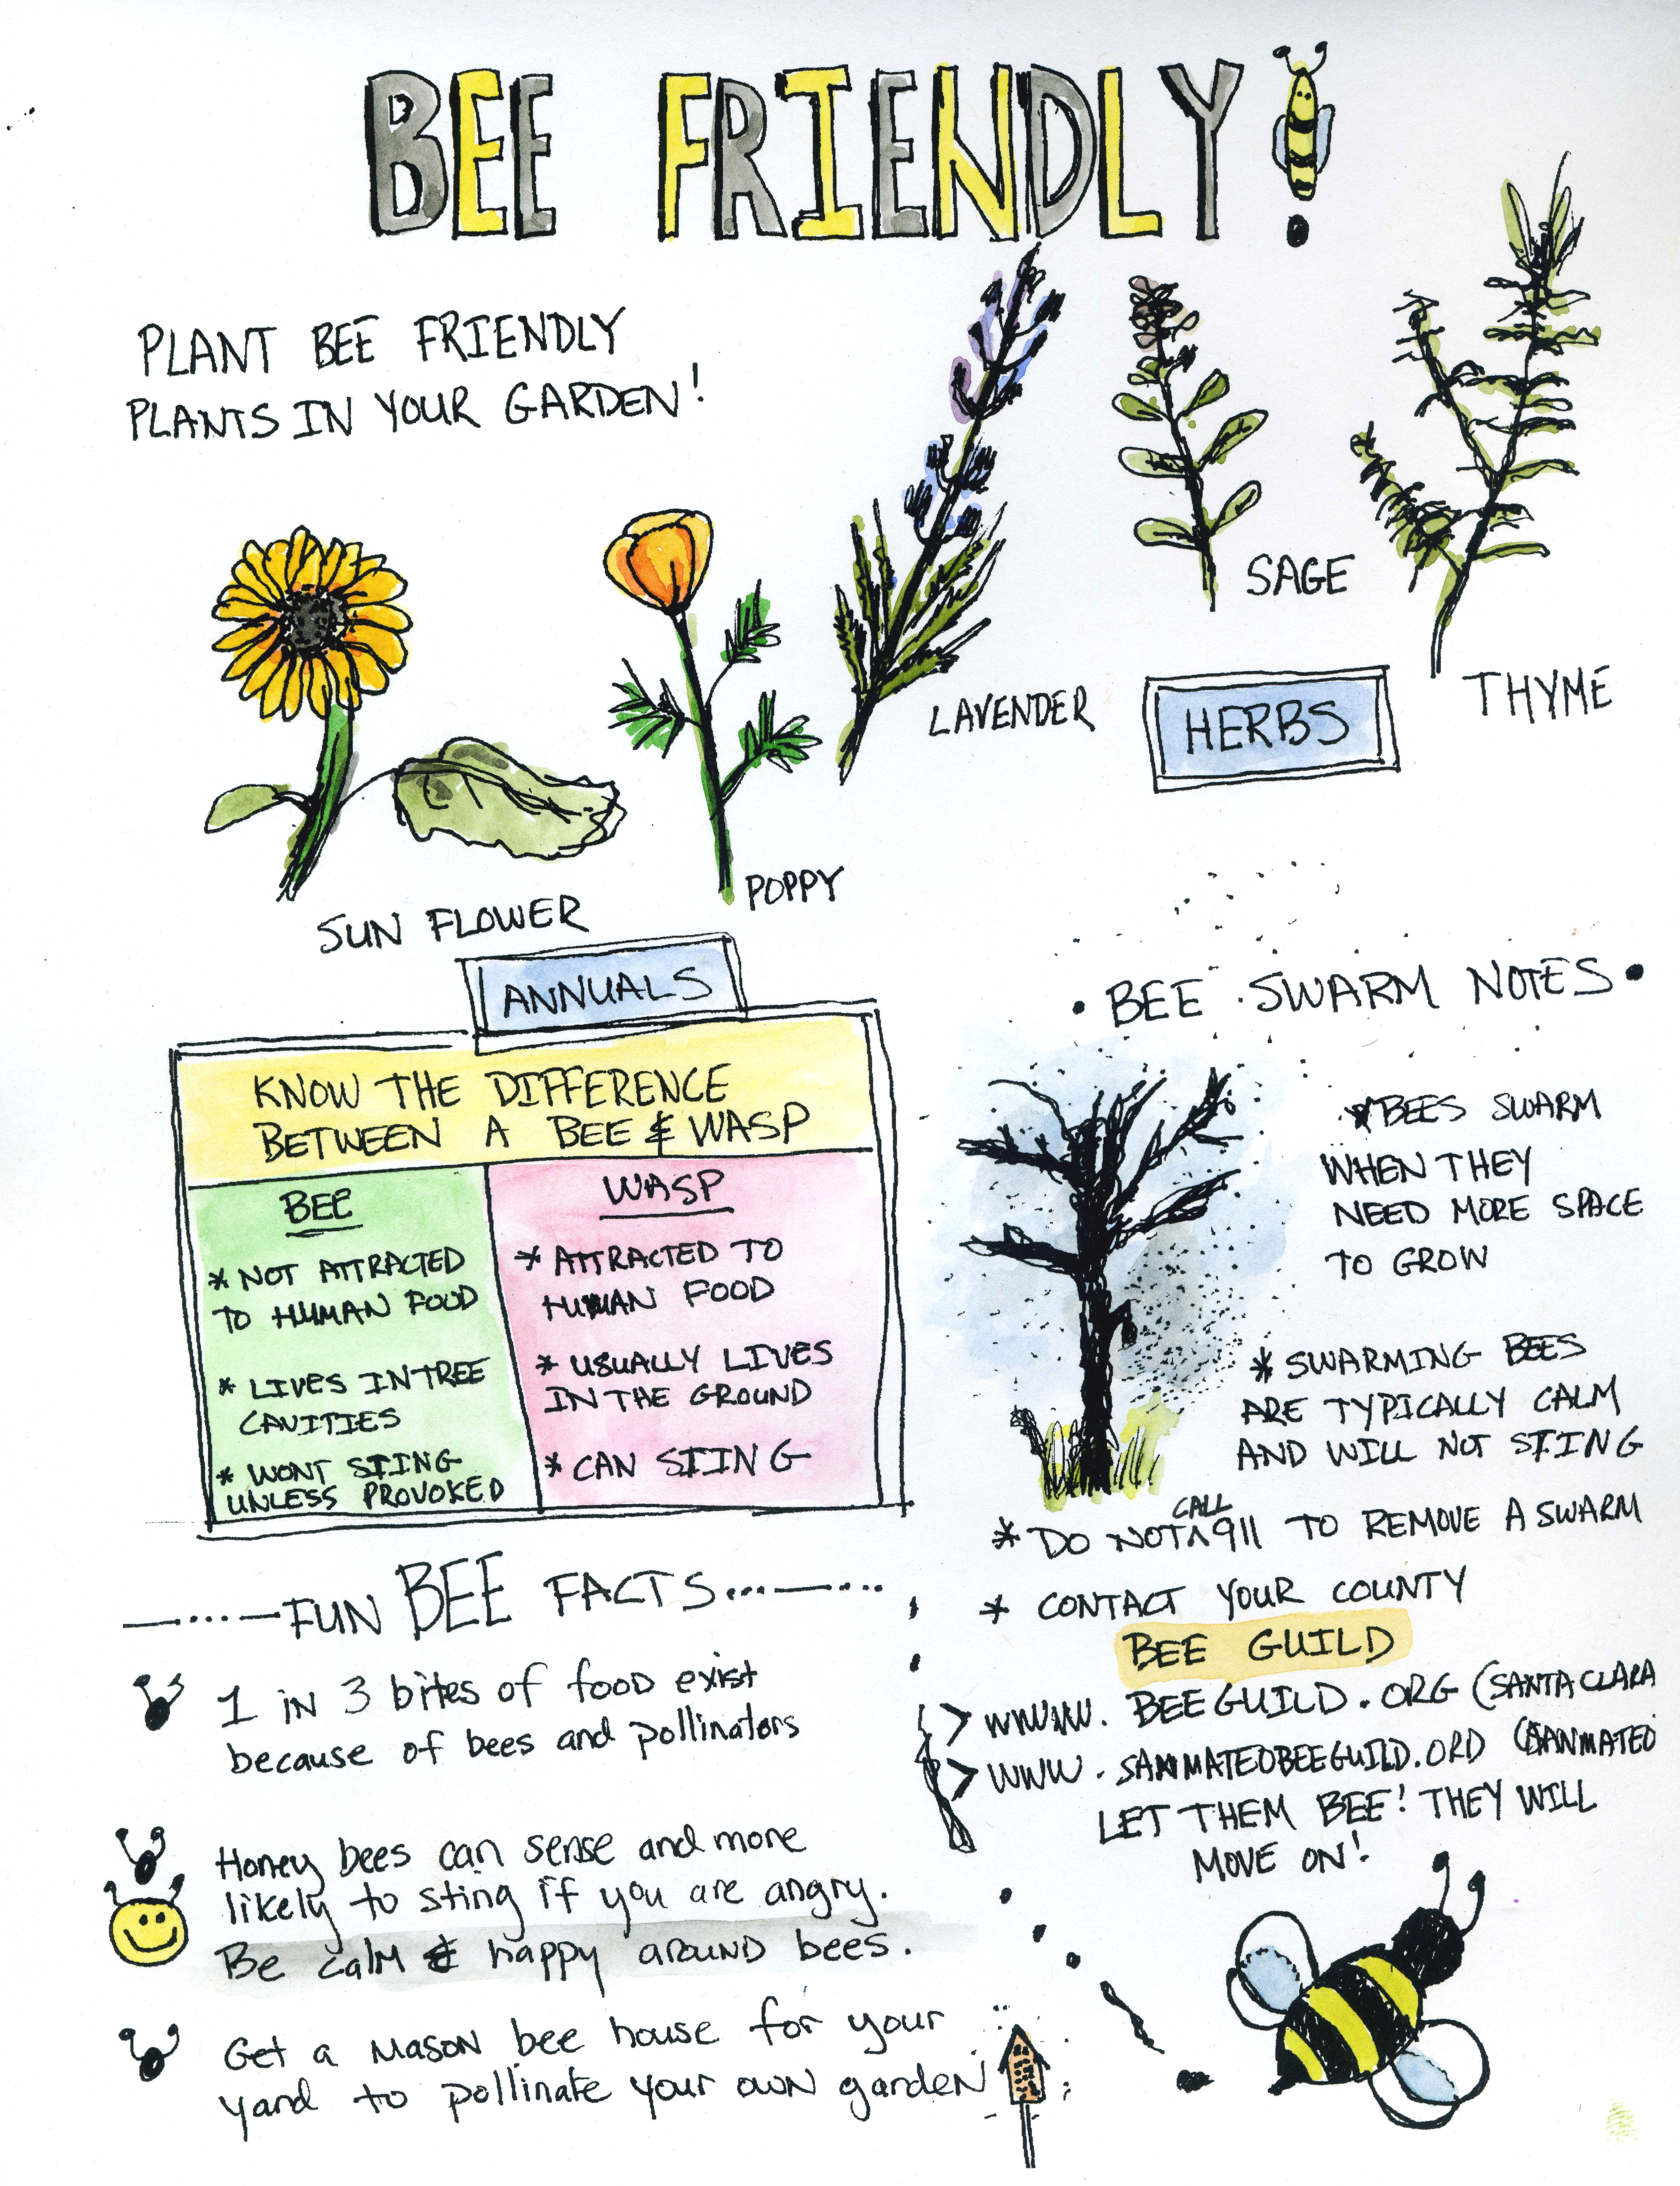 BEE FRIENDLY!
PLANT BEE FRIENDLY
PLANTS IN YOUR GARDEN!
SUN FLOWER
POPPY
ANNUALS
LAVENDER
SAGE
THYME
HERBS
KNOW THE DIFFERENCE
BETWEEN A BEE & WASP
BEE
* NOT ATTRACTED
TO HUMAN FOOD
* LIVES IN TREE
CAVITIES
* WONT STING
UNLESS PROVOKED
WASP
* ATTRACTED TO
HUMAN FOOD
* USUALLY LIVES
IN THE GROUND
* CAN STING
• BEE SWARM NOTES •
* BEES SWARM
WHEN THEY
NEED MORE SPACE
TO GROW
* SWARMING BEES
ARE TYPICALLY CALM
AND WILL NOT STING
* DO NOT CALL 911 TO REMOVE A SWARM
* CONTACT YOUR COUNTY
BEE GUILD
> WWW. BEEGUILD.ORG (SANTA CLARA
> WWW. SANMATEOBEEGUILD.ORD (SANMATEO
LET THEM BEE! THEY WILL
MOVE ON!
FUN BEE FACTS
1 in 3 bites of food exist
because of bees and pollinators
Honey bees can sense and more
likely to sting if you are angry.
Be calm & happy around bees.
Get a mason bee house for your
yard to pollinate your own garden